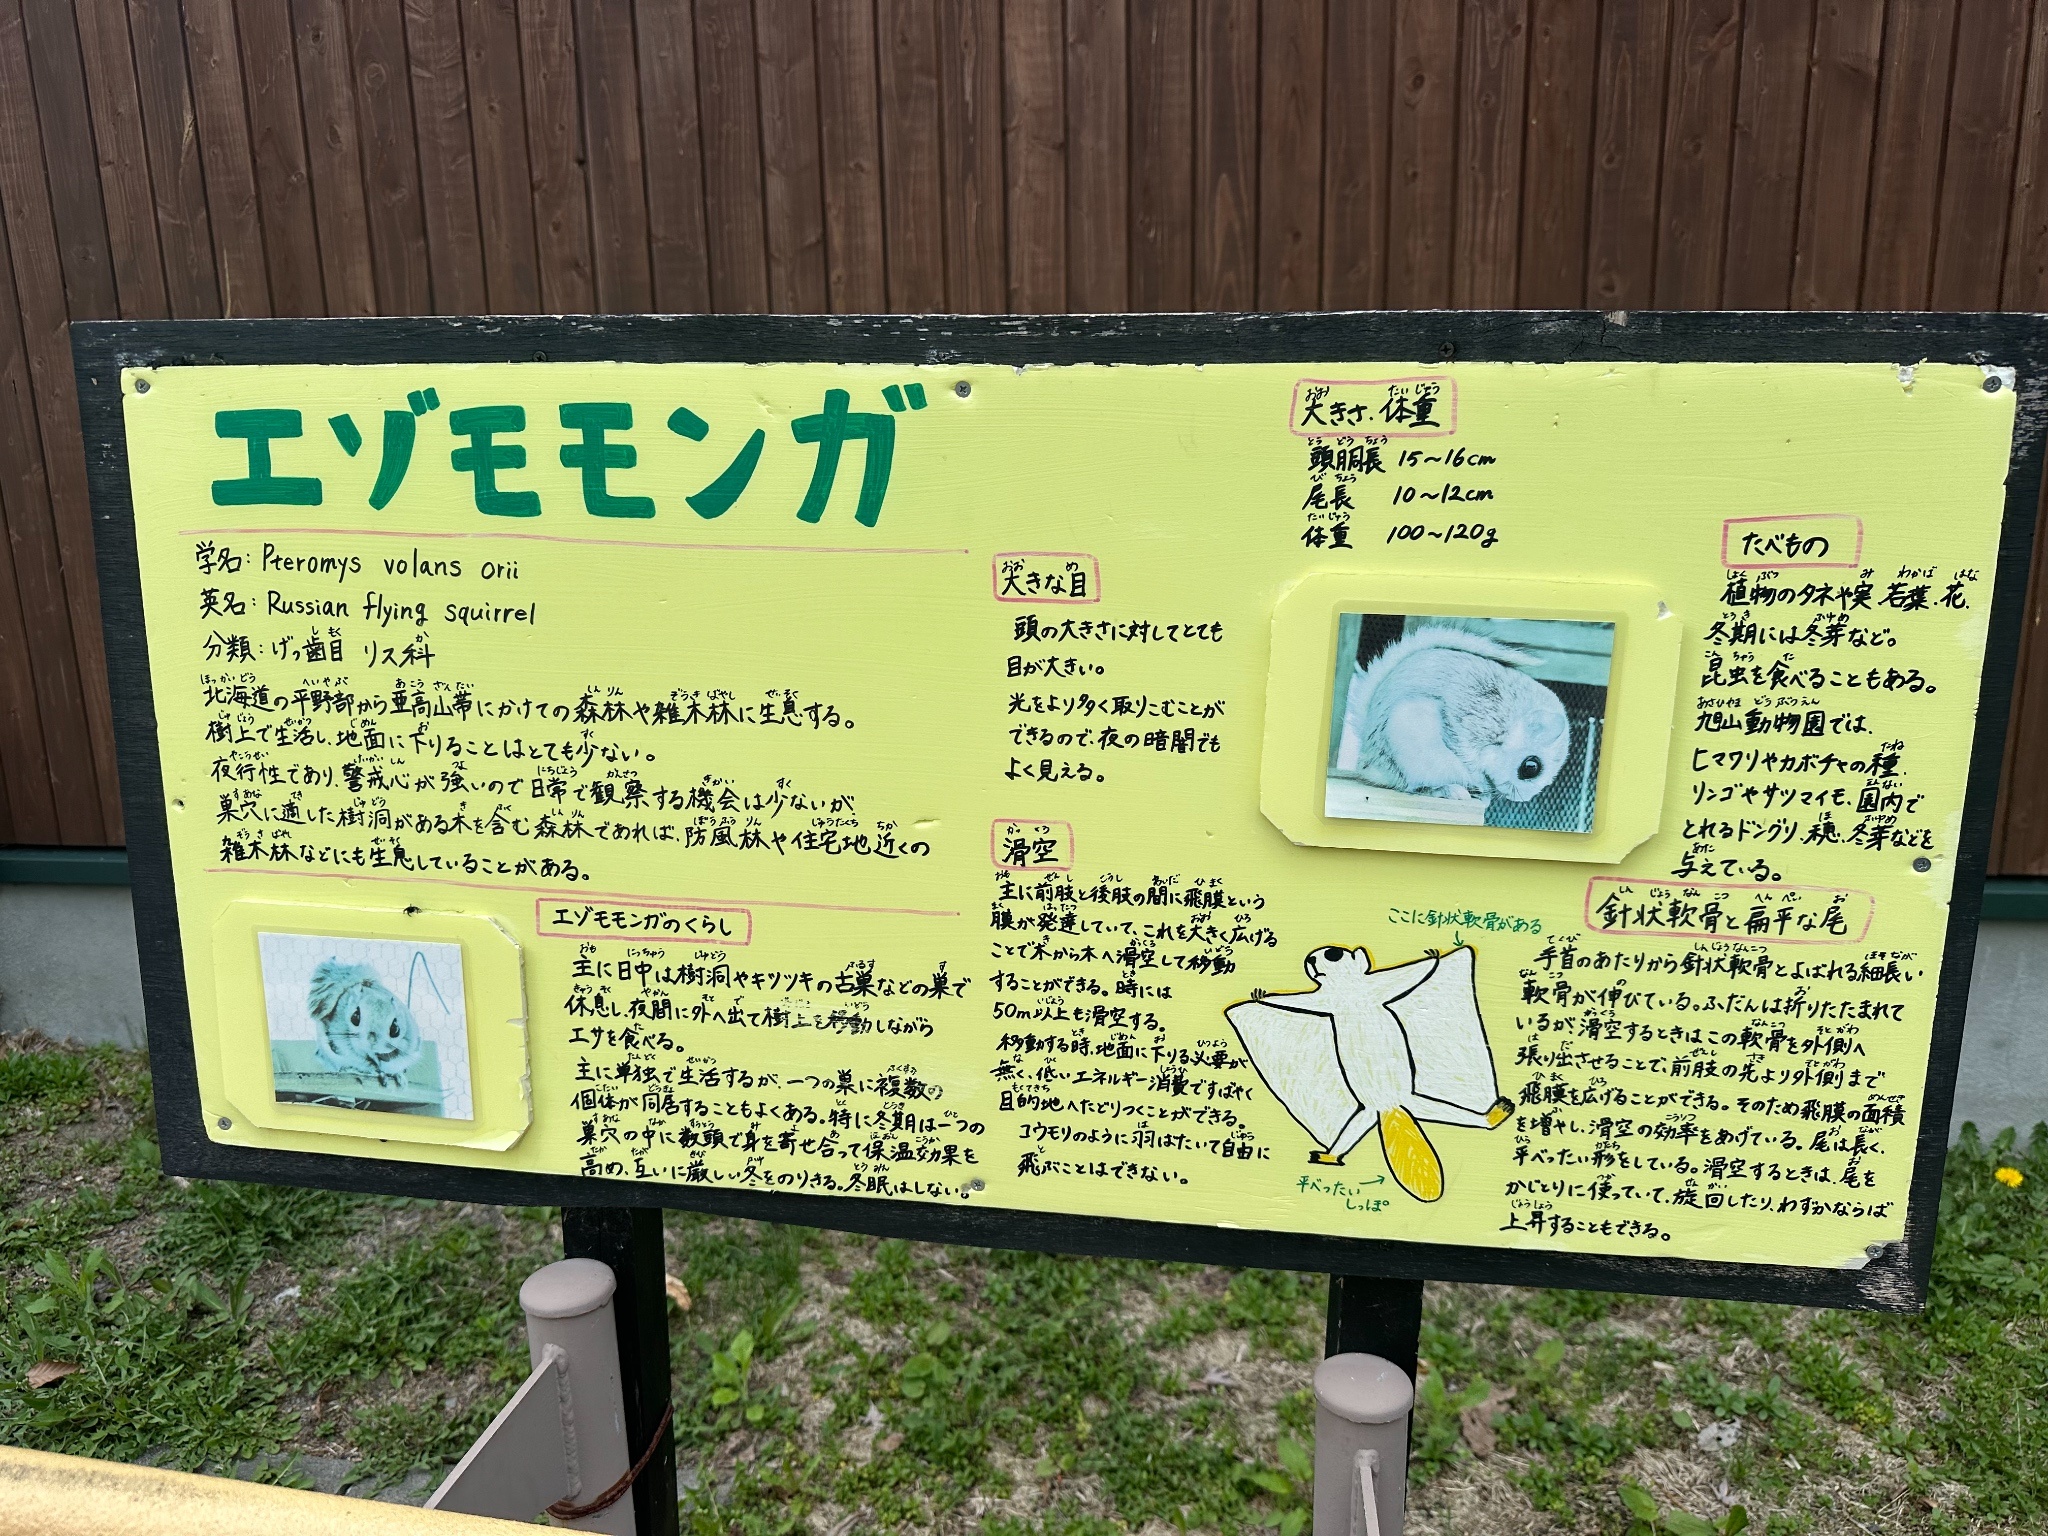 エゾモモンガ
学名: Pteromys volans orii
英名: Russian flying squirrel
分類: げっ歯目 リス科
北海道の平野部から亜高山帯にかけての森林や雑木林に生息する。
樹上で生活し、地面に下りることはとても少ない。
夜行性であり、警戒心が強いので日常で観察する機会は少ないが、
巣穴に適した樹洞がある木を含む森林であれば、防風林や住宅地近くの
雑木林などにも生息していることがある。
エゾモモンガのくらし
主に日中は樹洞やキツツキの古巣などの巣で
休息し、夜間に外へ出て樹上を移動しながら
エサを食べる。
主に単独で生活するが、一つの巣に複数の
個体が同居することもよくある。特に冬期は一つの
巣穴の中に数頭で身を寄せ合って保温効果を
高め、互いに厳しい冬をのりきる。冬眠はしない。
大きな目
頭の大きさに対してとても
目が大きい。
光をより多く取りこむことが
できるので、夜の暗闇でも
よく見える。
滑空
主に前肢と後肢の間に飛膜という
膜が発達していて、これを大きく広げる
ことで木から木へ滑空して移動
することができる。時には
50m以上も滑空する。
移動する時、地面に下りる必要が
無く、低いエネルギー消費ですばやく
目的地へたどりつくことができる。
コウモリのように羽ばたいて自由に
飛ぶことはできない。
大きさ、体重
頭胴長 15~16cm
尾長 10~12cm
体重 100~120g
たべもの
植物のタネや実、若葉、花、
冬期には冬芽など。
昆虫を食べることもある。
旭山動物園では、
ヒマワリやカボチャの種、
リンゴやサツマイモ、園内で
とれるドングリ、穂、冬芽などを
与えている。
針状軟骨と扁平な尾
手首のあたりから針状軟骨とよばれる細長い
軟骨が伸びている。ふだんは折りたたまれて
いるが滑空するときはこの軟骨を外側へ
張り出させることで、前肢の先より外側まで
飛膜を広げることができる。そのため飛膜の面積
を増やし、滑空の効率をあげている。尾は長く、
平べったい形をしている。滑空するときは、尾を
かじとりに使っていて、旋回したり、わずかならば
上昇することもできる。
ここに針状軟骨がある
平べったい
しっぽ